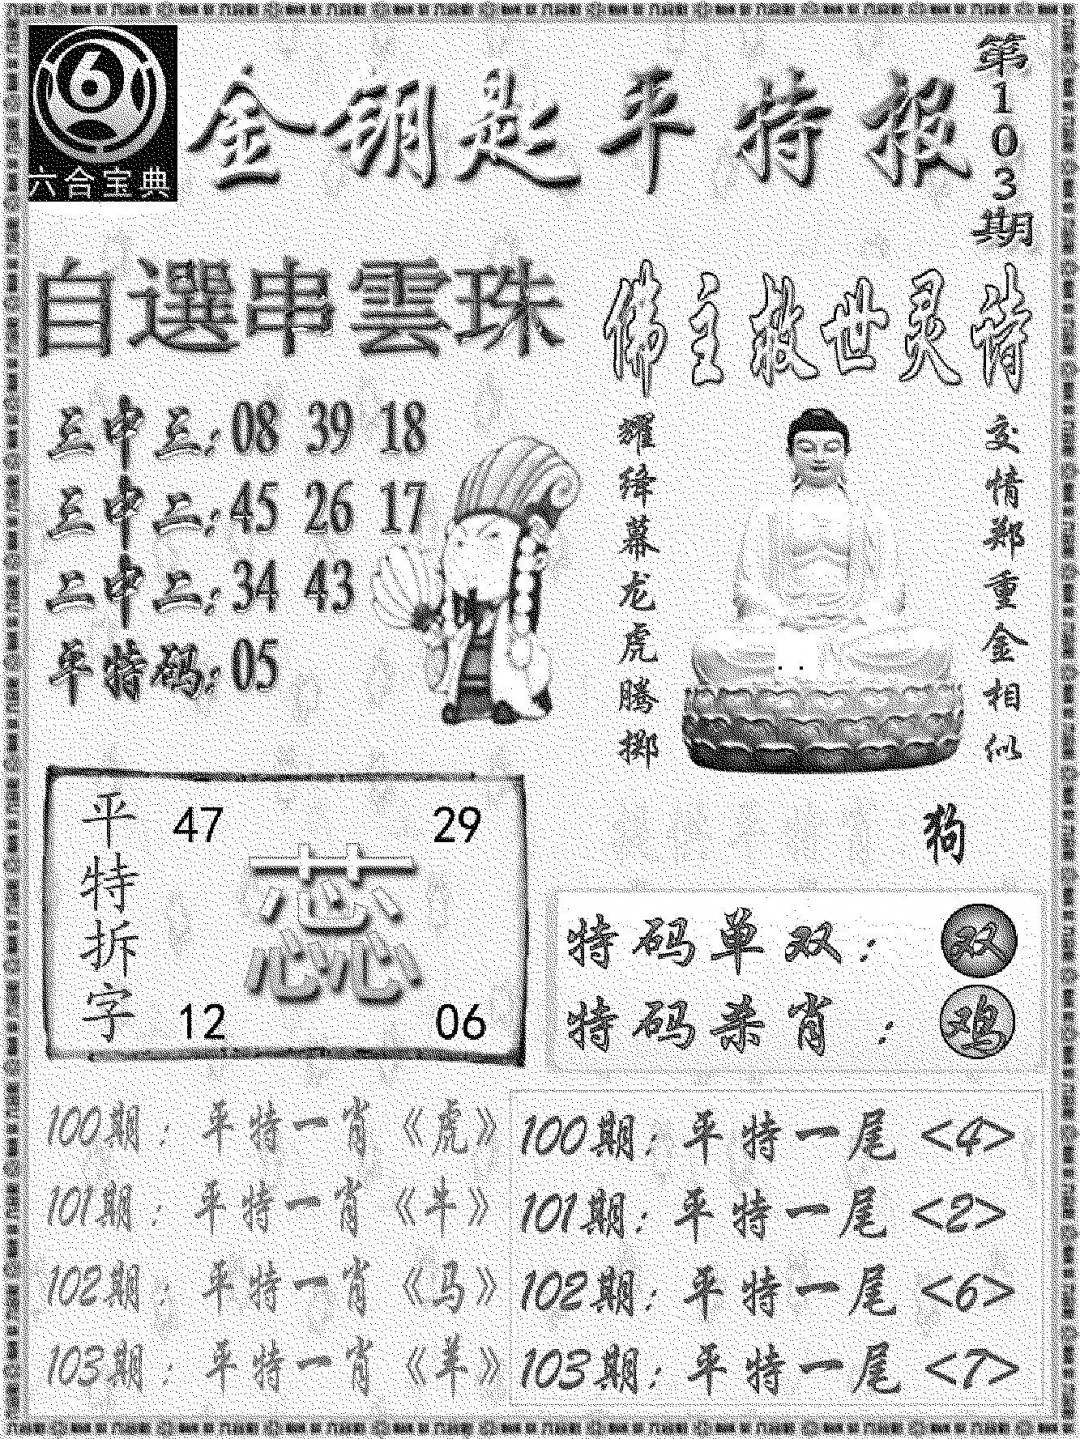 六合宝典
金钥匙平特报
第103期
自選串雲珠
三中三：08 39 18
三中二：45 26 17
二中二：34 43
平特码：05
佛主救世灵诗
耀绛幕龙虎腾掷
交情郑重金相似
狗
平特拆字
47 29
蕊
12 06
特码单双：双
特码杀肖：鸡
100期：平特一肖《虎》
101期：平特一肖《牛》
102期：平特一肖《马》
103期：平特一肖《羊》
100期：平特一尾<4>
101期：平特一尾<2>
102期：平特一尾<6>
103期：平特一尾<7>